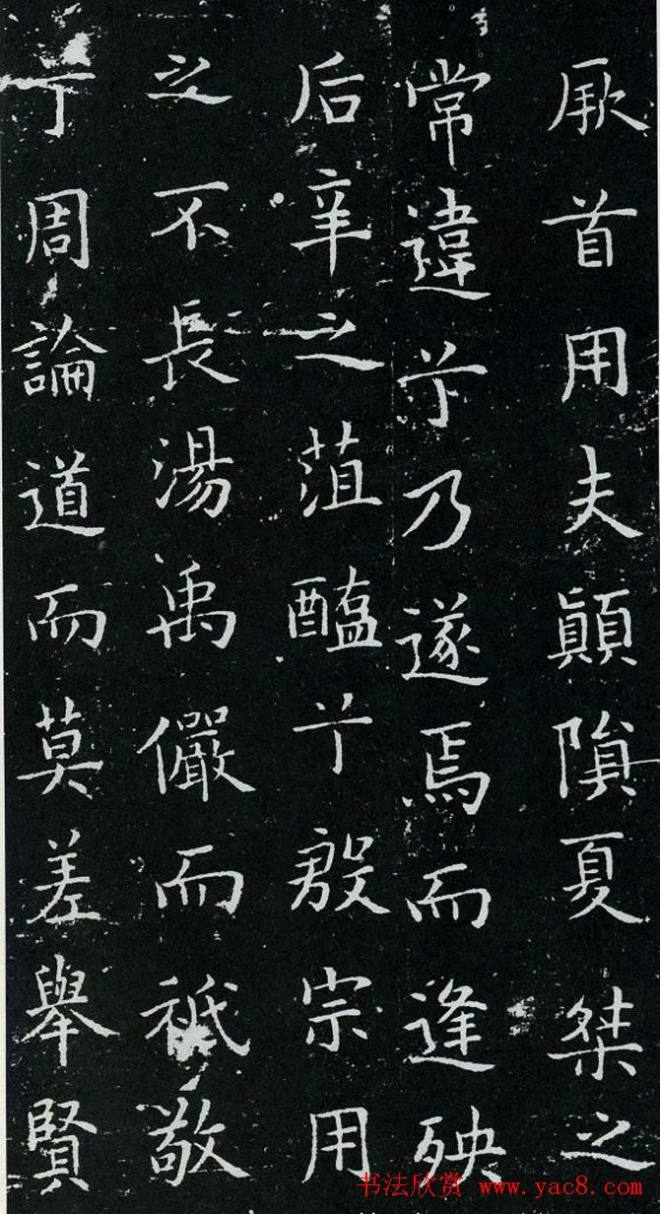 厥首用夫顛隕夏桀之
常違兮乃遂焉而逢殃
后辛之菹醢兮殷宗用
之不長湯禹儼而祗敬
兮周論道而莫差舉賢
书法欣赏 www.yac8.com